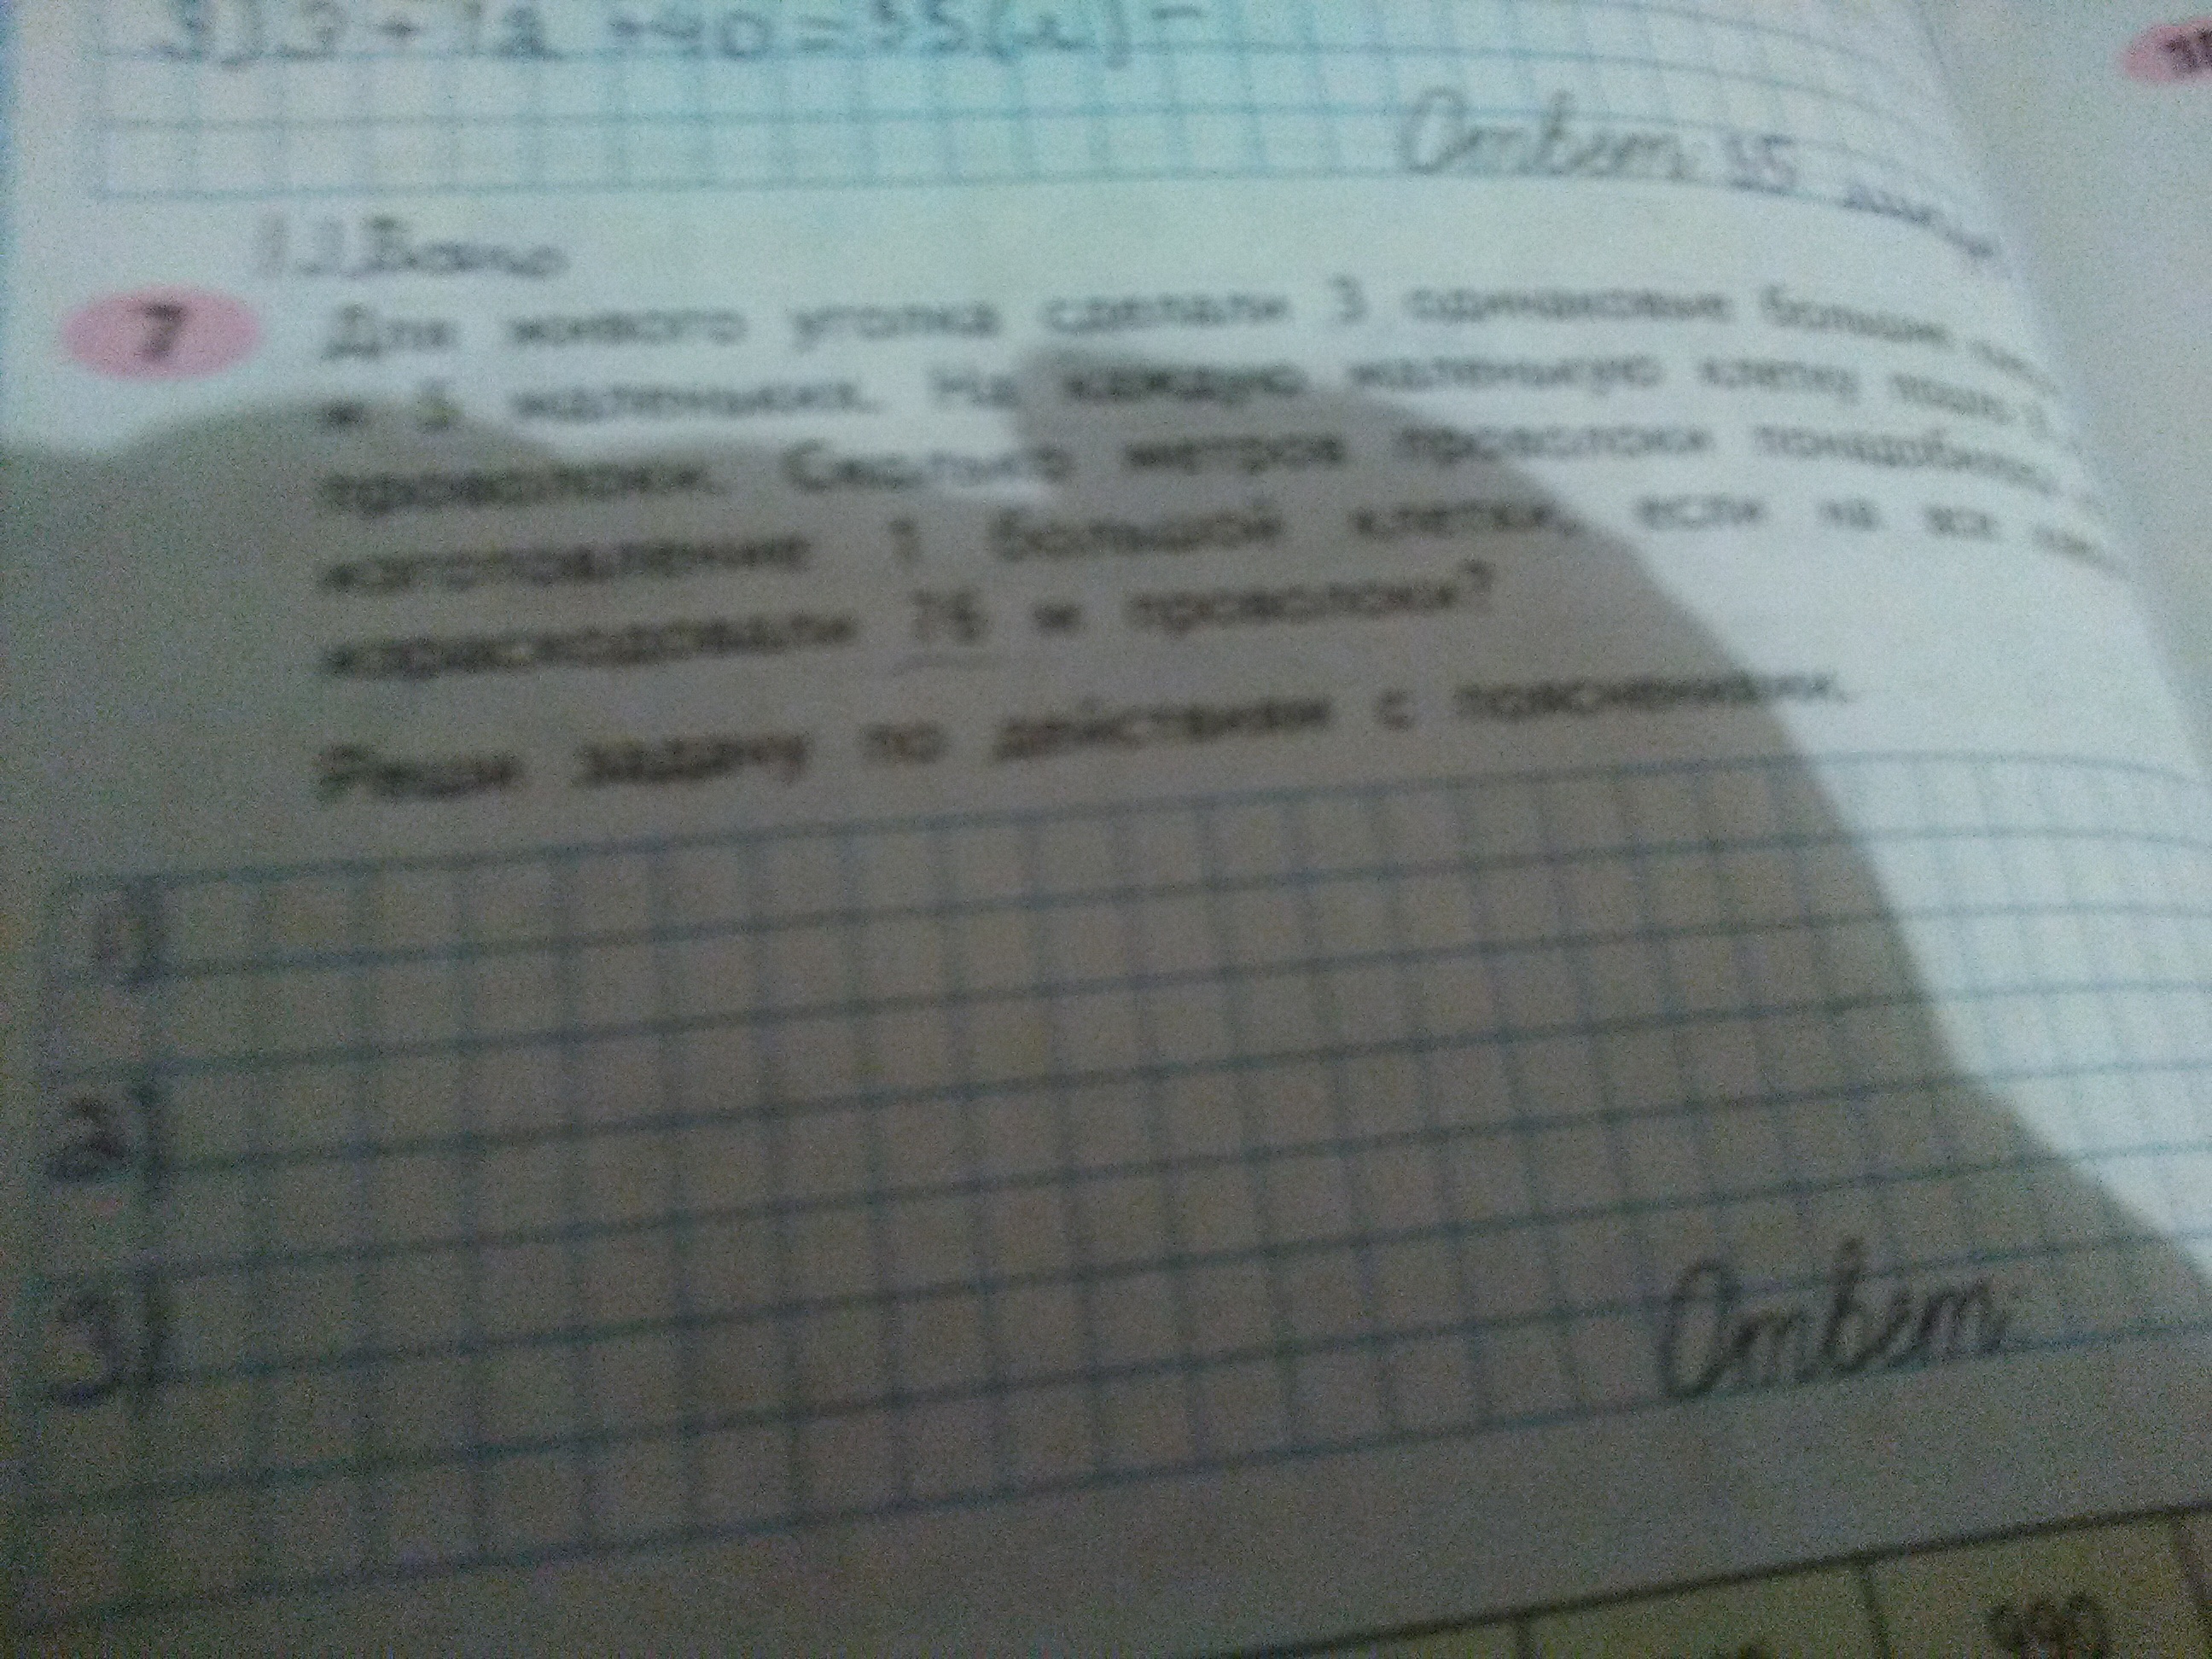 3) 3 + 12 + 40 = 55 (
Ответ: 55
7 Для живого уголка сделали 3 одинаковые большие
и 5 маленьких. На каждую маленькую клетку пошло 8
проволоки. Сколько метров проволоки понадобилось
изготовление 1 большой клетки, если на все
израсходовали 76 м проволоки?
Реши задачу по действиям с пояснениями.
1)
2)
3)
Ответ
990